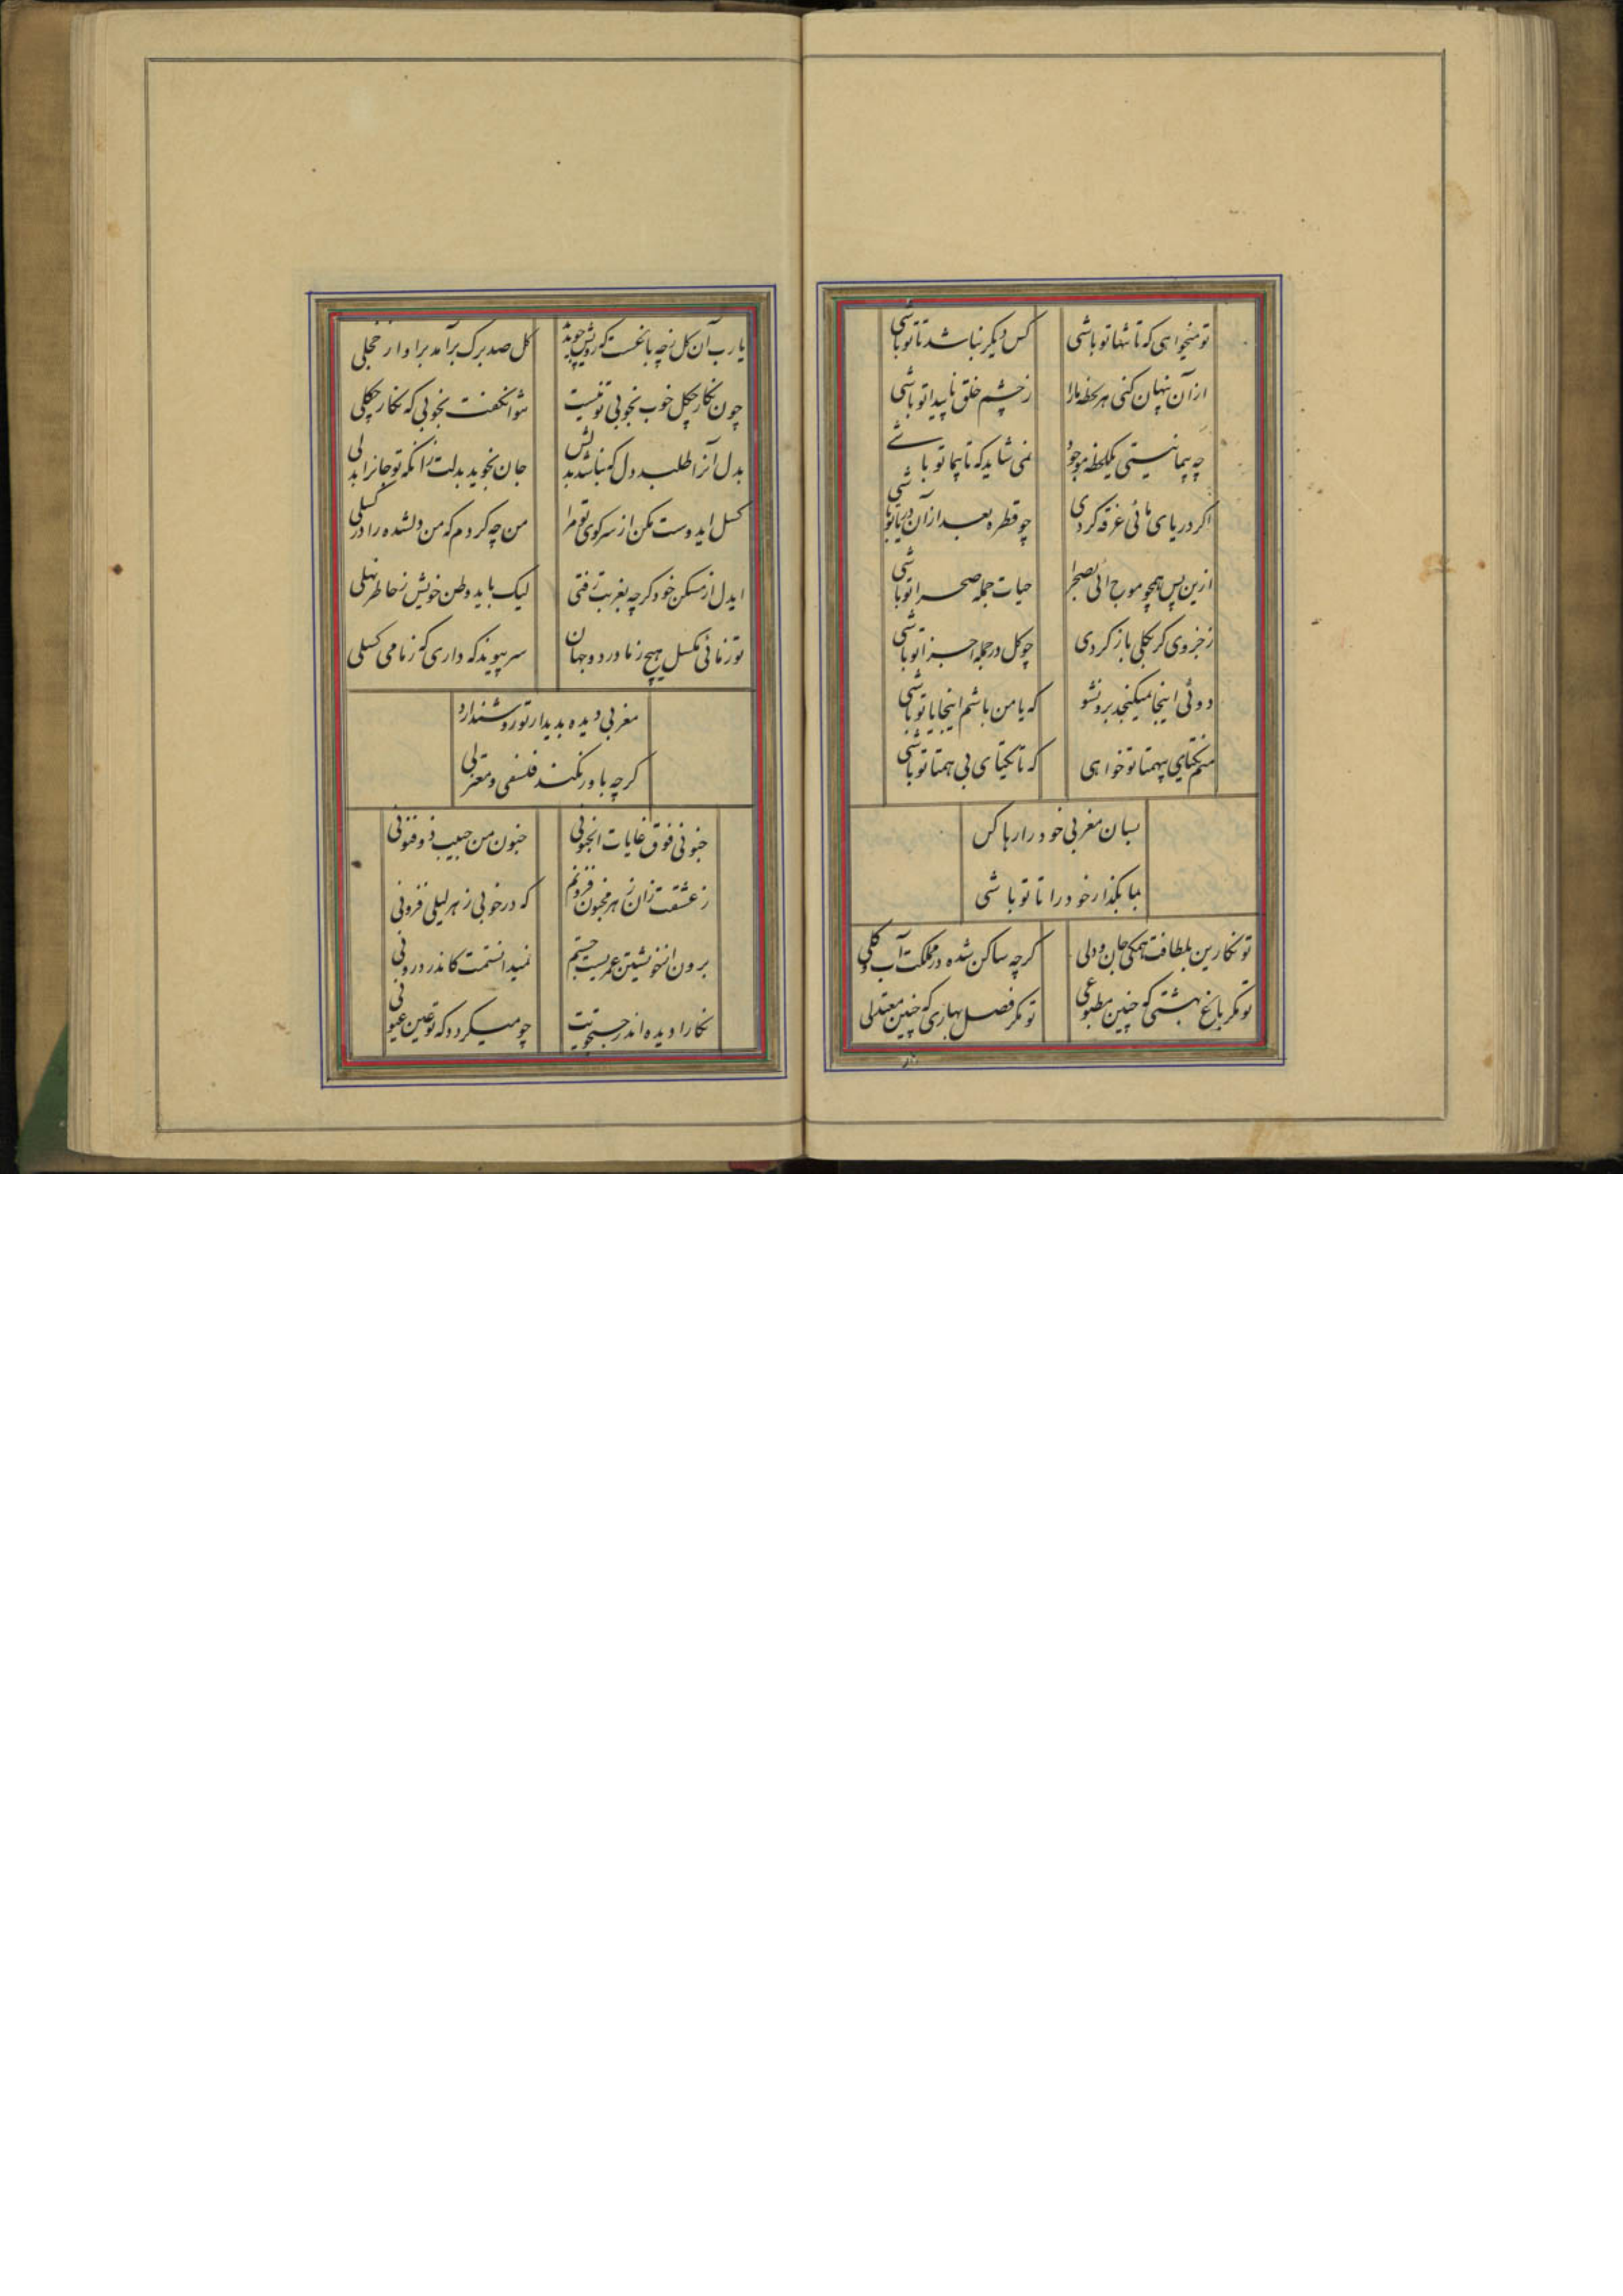 تو میخواهی که تا تنها تو باشی کس دیگر نباشد تا تو باشی
از آن پنهان کنی هر لحظه ما را ز چشم خلق تا پیدا تو باشی
چه پیما نیستی یکلحظه موجود نمی شاید که تا پیما تو باشی
اگر دریای مائی غرقه کردی چو قطره بعد از آن دریا تو باشی
ازین پس همچو موج آئی بصحرا حیات جمله صحرا تو باشی
ز جزوی گر بکلی باز گردی چو کل در جمله اجزا تو باشی
دوئی اینجا نمیگنجد برون شو که یا من باشم اینجا یا تو باشی
منم یکتای بیهمتا تو خواهی که تا یکتای بی همتا تو باشی
بسان مغربی خود را رها کن
بما بگذار خود را تا تو باشی
تو نگارین بلطافت همگی جان و دلی گرچه ساکن شده در مملکت آب و گلی
تو مگر باغ بهشتی که چنین مطبوعی تو مگر فصل بهاری که چنین معتدلی
یا رب آن گل ز چه باغست که رویش چو بدید گل صد برگ برآمد برِ او از خجلی
چون نگار چگل خوب بخوبی تو نیست نتوان گفت بخوبی که نگار چگلی
بدل آنرا طلبد دل که نباشد بدلش جان نجوید بدلت زانکه تو جانرا بدلی
گسل ایدوست مکن از سر کوی تو مرا من چه کردم که من دلشده را در گسلی
ایدل از مسکن خود گرچه بغربت رفتی لیک باید وطن خویش ز خاطر نهلی
تو زمانی مگسل هیچ ز ما در دو جهان سر پیوند که داری که ز ما می گسلی
مغربی دیده بدیدار تو روشن دارد
گرچه باور نکند فلسفی و معتزلی
جنونی فوق غایات الجنونی جنون من حبیب ذو فنونی
ز عشقت زان ز هر مجنون فزونم که در خوبی ز هر لیلی فزونی
برون از خویشتن عمریست جستم نمیدانستمت کاندر درونی
نگارا دیده اندر جستجویت چو میگردد که تو عین عیونی